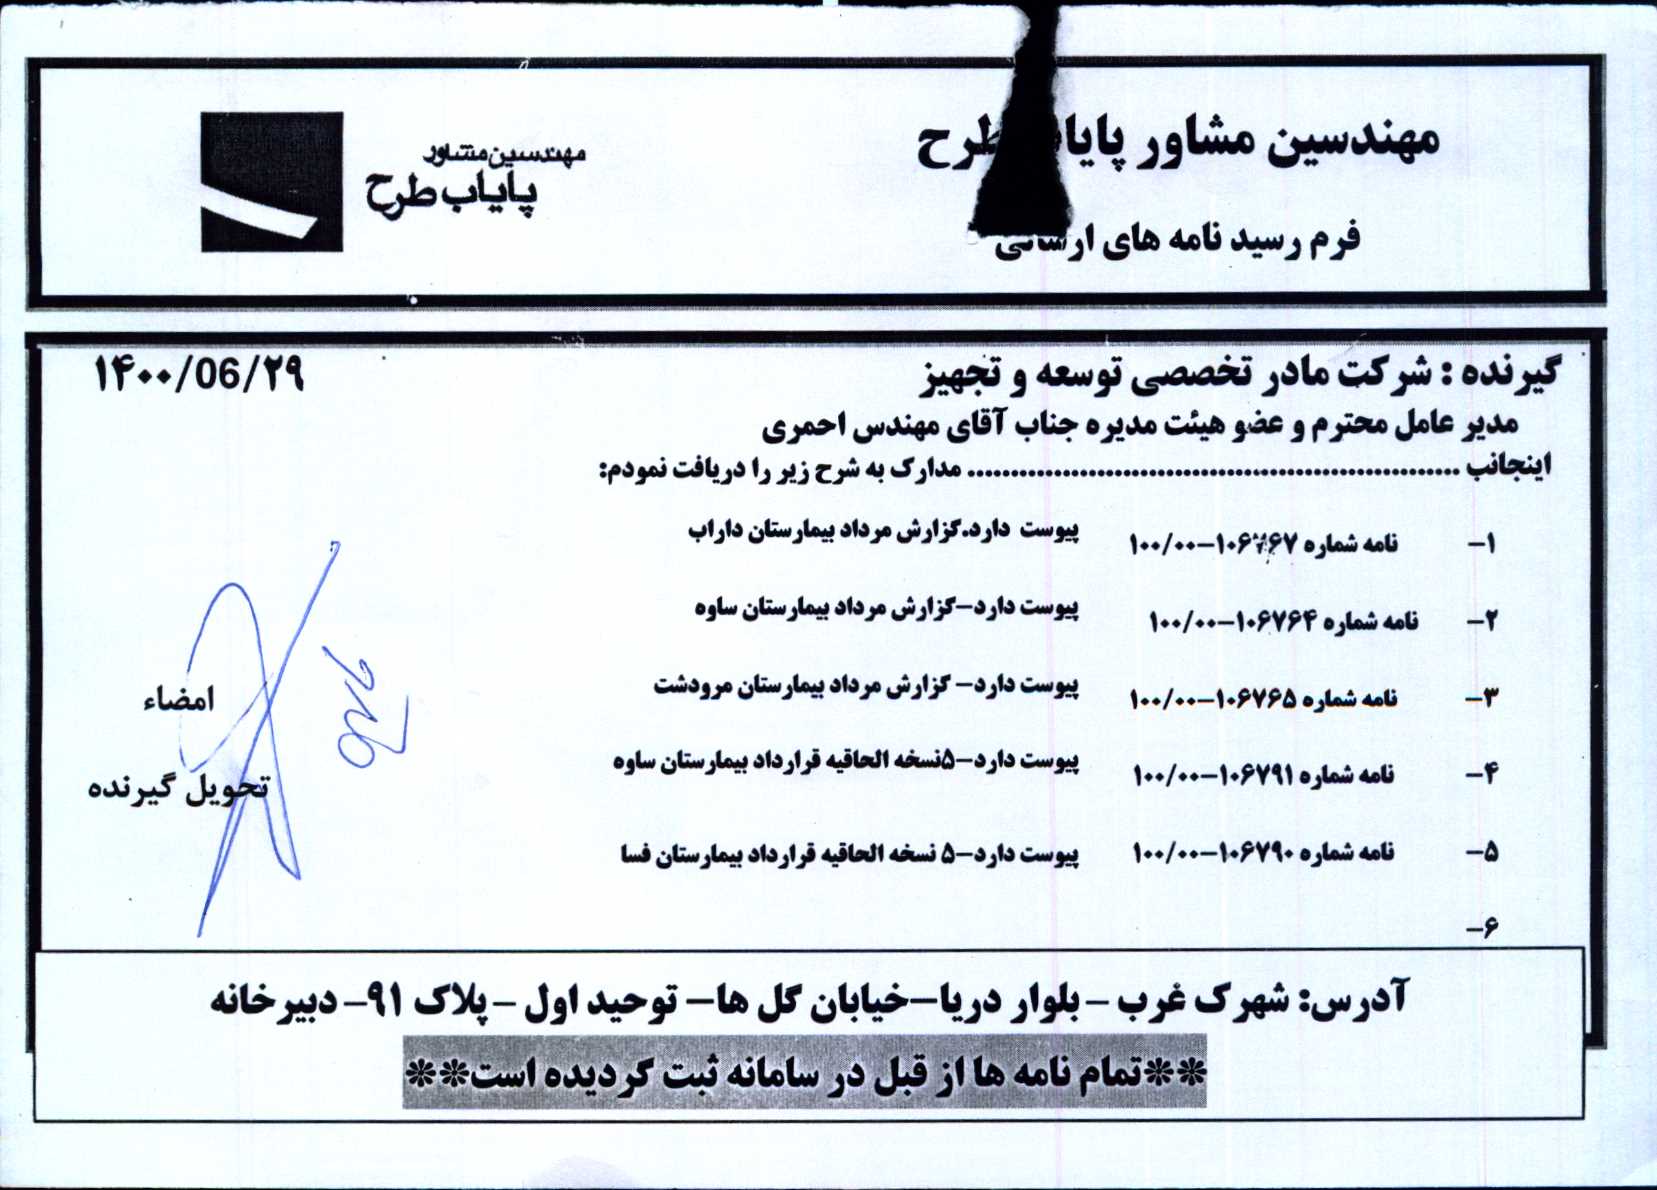 مهندسین مشاور پایاب طرح
فرم رسید نامه های ارسالی
مهندسین مشاور
پایاب طرح
گیرنده : شرکت مادر تخصصی توسعه و تجهیز
۱۴۰۰/06/۲۹
مدیر عامل محترم و عضو هیئت مدیره جناب آقای مهندس احمری
اینجانب ........................................................ مدارک به شرح زیر را دریافت نمودم:
۱- نامه شماره ۱۰۶۷۶۷-۱۰۰/۰۰ پیوست دارد.گزارش مرداد بیمارستان داراب
۲- نامه شماره ۱۰۶۷۶۴-۱۰۰/۰۰ پیوست دارد-گزارش مرداد بیمارستان ساوه
۳- نامه شماره ۱۰۶۷۶۵-۱۰۰/۰۰ پیوست دارد- گزارش مرداد بیمارستان مرودشت
۴- نامه شماره ۱۰۶۷۹۱-۱۰۰/۰۰ پیوست دارد-۵نسخه الحاقیه قرارداد بیمارستان ساوه
۵- نامه شماره ۱۰۶۷۹۰-۱۰۰/۰۰ پیوست دارد-۵ نسخه الحاقیه قرارداد بیمارستان فسا
۶-
امضاء
تحویل گیرنده
آدرس: شهرک غرب - بلوار دریا-خیابان گل ها- توحید اول -پلاک ۹۱- دبیرخانه
**تمام نامه ها از قبل در سامانه ثبت گردیده است**